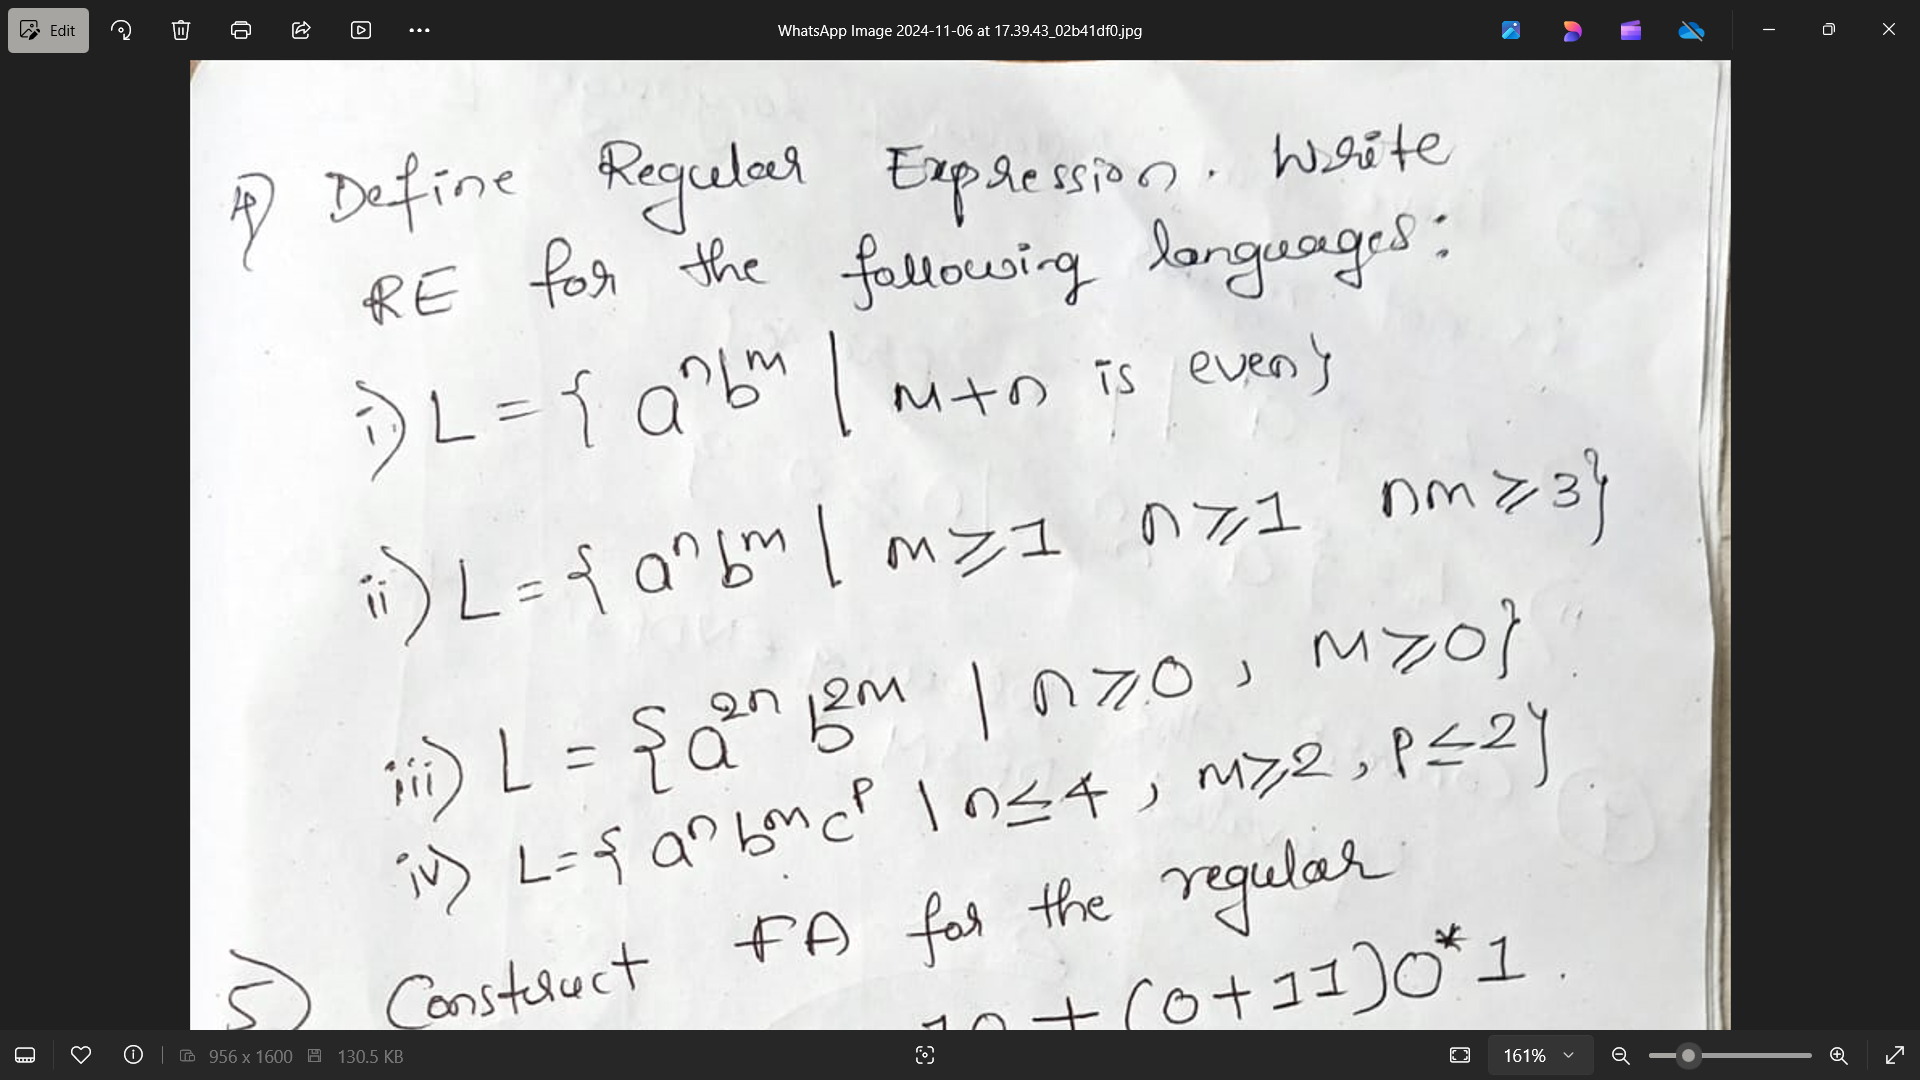 Edit
WhatsApp Image 2024-11-06 at 17.39.43_02b41df0.jpg
4) Define Regular Expression. Write
RE for the following languages:
i) L = { aⁿbᵐ | m+n is even}
ii) L = { aⁿbᵐ | m ⩾ 1 n ⩾ 1 nm ⩾ 3}
iii) L = {a²ⁿ b²ᵐ | n ⩾ 0, m ⩾ 0}
iv) L = { aⁿ bᵐ cᵖ | n ≤ 4, m ⩾ 2, p ≤ 2}
5) Construct FA for the regular
10 + (0+11)0*1.
956 x 1600 130.5 KB
161%